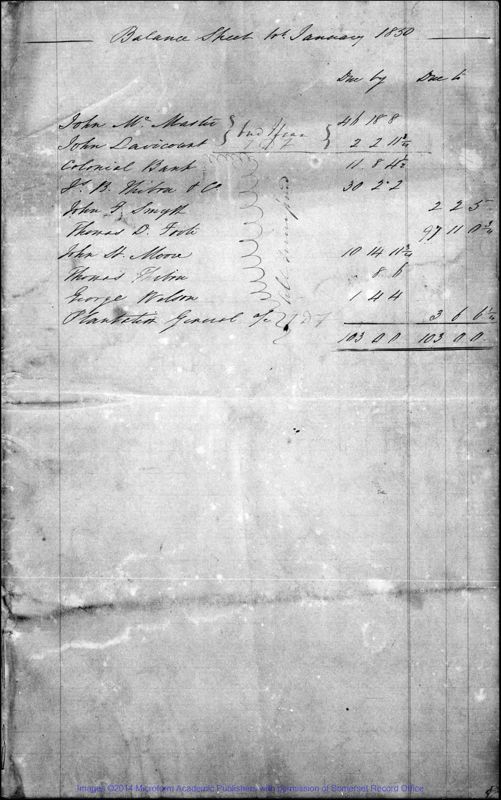 Balance Sheet 1st January 1850
Due by Due to
John Mc Master 46 18 8
John Davicourt 2 2 11 3/4
Colonial Bank 11 8 4 1/2
B. Thibou & Co 30 2 2
John F. Smyth 2 2 5
Thomas D. Foote 97 11 0 3/4
John St. Moore 10 14 11 3/4
Thomas Thibou 8 6
George Wilson 1 4 4
Plantation General a/c 3 6 6 1/4
103 0 0 103 0 0
Images ©2014 Microform Academic Publishers with permission of Somerset Record Office